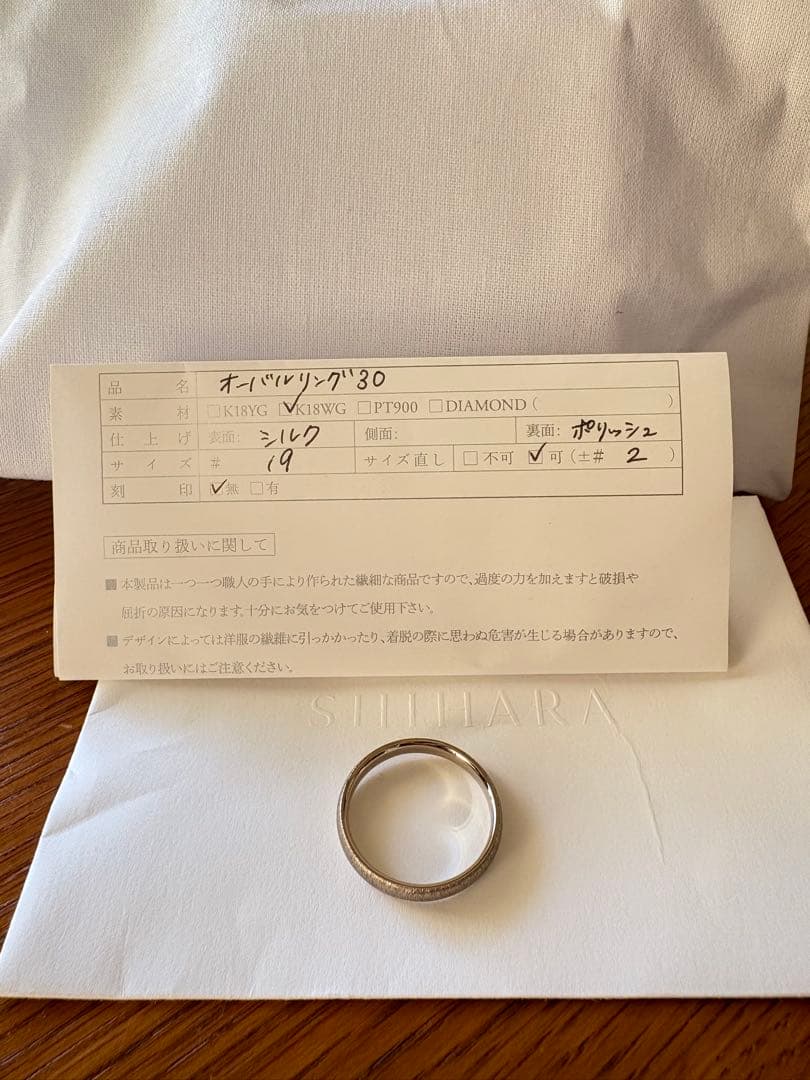 品名 オーバルリング30
素材 □K18YG ☑K18WG □PT900 □DIAMOND ( )
仕上げ 表面: シルク 側面: 裏面: ポリッシュ
サイズ # 19 サイズ直し □不可 ☑可 (±# 2 )
刻印 ☑無 □有
商品取り扱いに関して
■ 本製品は一つ一つ職人の手により作られた繊細な商品ですので、過度の力を加えますと破損や
屈折の原因になります。十分にお気をつけてご使用下さい。
■ デザインによっては洋服の繊維に引っかかったり、着脱の際に思わぬ危害が生じる場合がありますので、
お取り扱いにはご注意ください。
SHIHARA